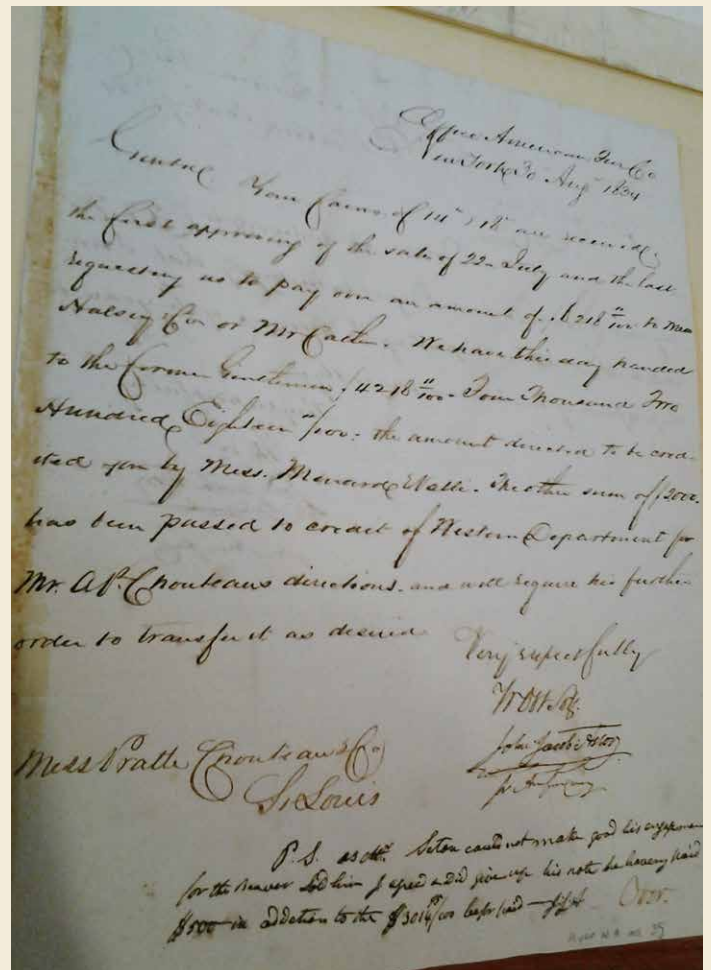 Office American Fur Co
New York 30 Aug 1834
Your favors of 14th & 18th are received,
the first approving of the sale of 22 July and the last
requesting us to pay over an amount of to Mess
Halsey & Co or Mr We have this day handed
to the former Gentlemen $4218 11/100. Four Thousand Two
Hundred Eighteen 11/100. the amount directed to be cred-
ited you by Mess. Menard & Valle. The other sum of $2000.
has been passed to credit of Western Department for
Mr. A. P. Chouteaus directions. and will require his further
order to transfer it as desired
Very respectfully
John Jacob Astor
Mess Pratte Chouteau & Co
St Louis
P. S. as Mr. Seton could not make good his
for the Beaver Sold him I agreed & did give up his note he having paid
$500 in addition to the before paid Over.